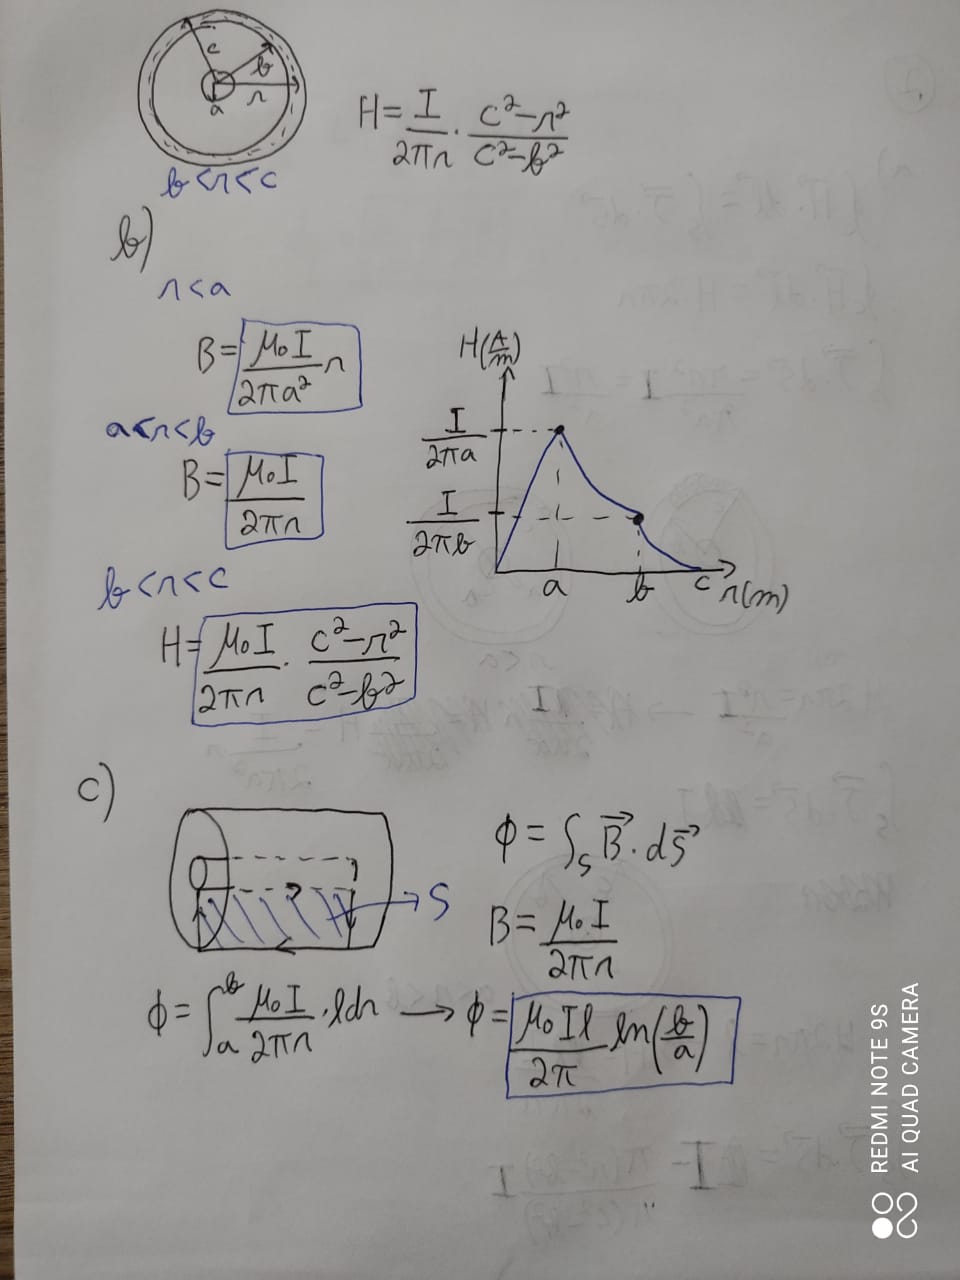 c
b
r
a
b<r<c
H = I/2πr · (c²-r²)/(c²-b²)
b)
r<a
B = μ₀I/2πa² r
a<r<b
B = μ₀I/2πr
b<r<c
H = μ₀I/2πr · (c²-r²)/(c²-b²)
H(A/m)
I/2πa
I/2πb
a b c r(m)
c)
S
ϕ = ∫ₛ B⃗ · dS⃗
B = μ₀I/2πr
ϕ = ∫ₐᵇ μ₀I/2πr · ldr → ϕ = μ₀Il/2π ln(b/a)
REDMI NOTE 9S
AI QUAD CAMERA